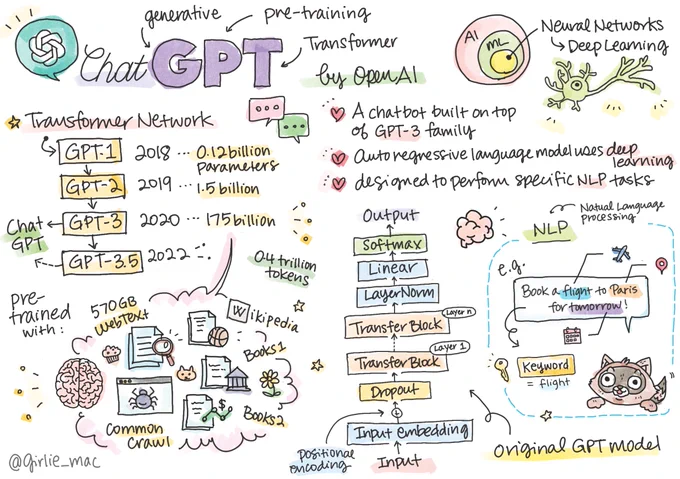 generative
pre-training
Transformer
Chat GPT
by OpenAI
AI
ML
Neural Networks
Deep Learning
Transformer Network
GPT-1 2018 ... 0.12 billion
parameters
GPT-2 2019 ... 1.5 billion
GPT-3 2020 ... 175 billion
Chat
GPT
GPT-3.5 2022 -
04 trillion
tokens
A chatbot built on top
of GPT-3 family
Autoregressive language model uses deep
learning
designed to perform specific NLP tasks
pre-
trained
with:
570GB
WebText
Wikipedia
Books1
Books2
Common
Crawl
Output
Softmax
Linear
LayerNorm
Transfer Block
Layer n
Transfer Block
Layer 1
Dropout
Input embedding
Positional
encoding
Input
Original GPT model
NLP
Natual Language
processing
e.g.
Book a flight to Paris
for tomorrow!
Keyword
= flight
@girlie_mac